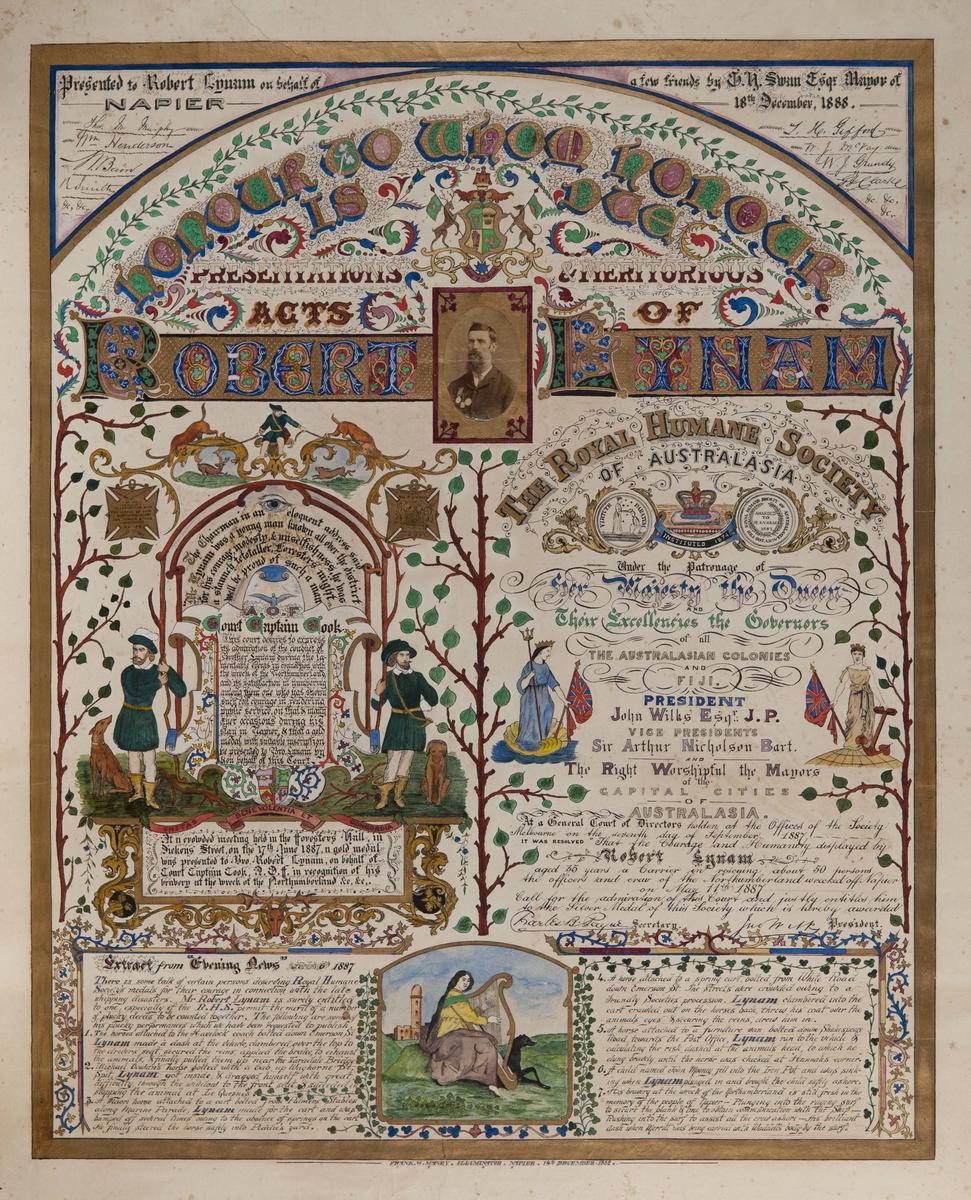 Presented to Robert Lynam on behalf of
NAPIER
a few friends by G. H. Swan Esqr. Mayor of
18th December, 1888.
Thos. M. Murphy
Wm Henderson
Bain
&c, &c.
W. J. McVay
W J Grundy
Clarke
&c. &c.
&c.
HONOUR TO WHOM HONOUR
IS DUE
PRESENTATIONS & MERITORIOUS
ACTS OF
ROBERT LYNAM
The Chairman in an eloquent address said
Mr Lynam was a young man known all over the district
for his courage, modesty, & unselfishness; he was
a staunch teetotaller, Foresters might
well be proud of such a man
A.O.F.
Court Captain Cook.
This court desires to express
its admiration of the conduct of
Brother Lynam during the la-
mentable events in connection with
the wreck of the Northumberland
and its satisfaction in numbering
among them one who has shown
such courage in rendering
signal service, on that & many
other occasions during his
stay in Napier, & that a gold
medal with suitable inscription
be presented to Bro. Lynam by
on behalf of this Court.
UNITAS BENEVOLENTIA ET CONCORDIA
At a crowded meeting held in the Forester's Hall, in
Dickens Street, on the 17th June 1887, a gold medal
was presented to Bro. Robert Lynam, on behalf of
Court Captain Cook, A.O.F. in recognition of his
bravery at the wreck of the Northumberland &c, &c,.
THE ROYAL HUMANE SOCIETY
OF AUSTRALASIA
INSTITUTED 1874
Under the Patronage of
Her Majesty the Queen
AND
Their Excellencies the Governors
of all
THE AUSTRALASIAN COLONIES
AND
FIJI.
PRESIDENT
John Wilks Esqr. J.P.
VICE PRESIDENTS
Sir Arthur Nicholson Bart.
AND
The Right Worshipful the Mayors
of the
CAPITAL CITIES
OF
AUSTRALASIA.
At a General Court of Directors holden at the Offices of the Society
Melbourne on the seventh day of September 1887,
IT WAS RESOLVED That the Courage and Humanity displayed by
Robert Lynam
aged 33 years a Carrier in rescuing about 50 persons
the officers and crew of the Northumberland wrecked off Napier
on May 11th 1887
Call for the admiration of this Court and justly entitles him
to the Silver Medal of this Society which is hereby awarded
Secretary. President.
Extract from "Evening News" 1887
There is some talk of certain persons deserving Royal Humane
Society's medals for their courage in connection with the late
shipping disasters. Mr Robert Lynam is surely entitled
to one, especially if the R.H.S. permit the merit of a number
of plucky deeds to be counted together. The following are some of
his plucky performances which we have been requested to publish.
1. The horses attached to the Havelock coach bolted down Emerson St
Lynam made a dash at the vehicle, clambered over the top to
the drivers seat, secured the reins, applied the brake, to exhaust
the animals & finally pulled them up near the Tutaekuri Bridge
2. Michael Gustin's horse bolted with a cab up Clyde
Lynam gave chase & dragged himself with great
difficulty through the window to the front and succeeded in
stopping the animal at Le Quesne's
3. A Maori horse attached to a cart bolted from Stables
along Marine Parade, Lynam made for the cart and was
thrown off several times owing to the wheeler's carryings on the road
he finally steered the horse safely into Peddie's yard.
4. A horse attached to a spring cart bolted from White Road
down Emerson St. The streets were crowded owing to a
Friendly Societies procession. Lynam clambered into the
cart crawled out on the horses back, threw his coat over the
animal's eyes & securing the reins, drew him in.
5. A horse attached to a furniture van bolted down Shakespeare
Road towards the Post Office, Lynam ran to the vehicle &
calculating the risk dashed at the animals head, to which he
clung bravely until the horse was checked at Hannah's corner.
6. A child named John Money fell into the Iron Pot and was sink-
ing when Lynam plunged in and brought the child safely ashore.
7. His bravery at the wreck of the Northumberland is still fresh in the
memory of the people of Napier — Plunging into the raging surf
to secure the plank & line to obtain communication with the ship —
Rushing into the surf to assist all the crews ashore — A brilliant
dash when Merritt was being carried with Waddell's body by the surf.
FRANK. W. ILLUMINATOR. NAPIER. 14th DECEMBER. 1888.